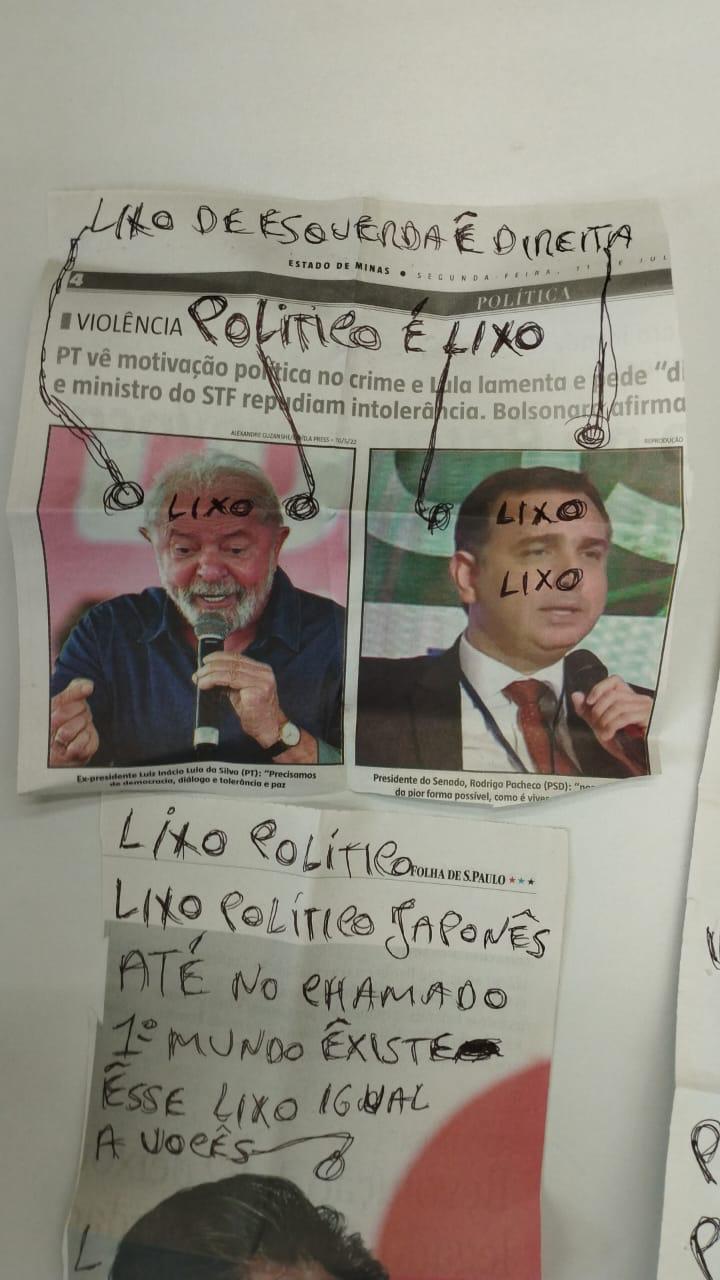 LIXO DE ESQUERDA Ê DIREITA
ESTADO DE MINAS ● SEGUNDA-FEIRA, 11 DE JUL
4
POLÍTICA
VIOLÊNCIA
POLÍTICO É LIXO
PT vê motivação política no crime e Lula lamenta e pede “di
e ministro do STF repudiam intolerância. Bolsonaro afirma
REPRODUÇÃO
LIXO
LIXO
LIXO
Ex-presidente Luiz Inácio Lula da Silva (PT): “Precisamos
de democracia, diálogo e tolerância e paz
Presidente do Senado, Rodrigo Pacheco (PSD):
da pior forma possível, como é
LIXO POLÍTICO
FOLHA DE S.PAULO ★★★
LIXO POLÍTICO JAPONÊS
ATÉ NO CHAMADO
1º MUNDO ÊXISTE
ÊSSE LIXO IGUAL
A VOCÊS
L
P
P